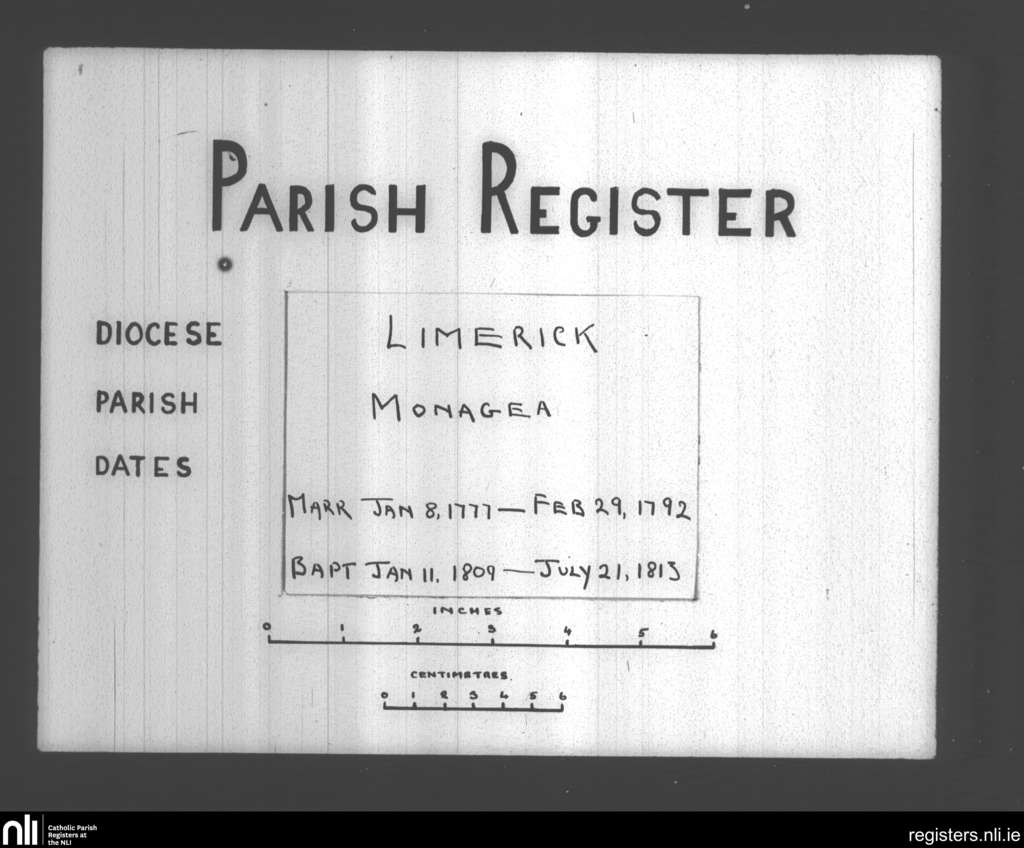 PARISH REGISTER
DIOCESE LIMERICK
PARISH MONAGEA
DATES
MARR JAN 8, 1777 — FEB 29, 1792
BAPT JAN 11, 1809 — JULY 21, 1813
INCHES
0 1 2 3 4 5 6
CENTIMETRES
0 1 2 3 4 5 6
nli Catholic Parish
Registers at
the NLI
registers.nli.ie